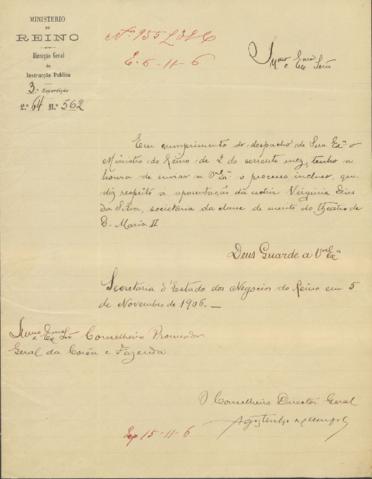 MINISTERIO
DO
REINO
Direcção Geral
de
Instrucção Publica
3.ª Repartição
L.º 64 N.º 562
Nº 955 L 32 C
E. 6-11-6
Illmo e Exmo Snr
Em cumprimento do despacho de Sua Exª o
Ministro do Reino de 2 do corrente mez, tenho a
honra de enviar a V. Exª o processo incluso, que
diz respeito a aposentação da actriz Virginia Dias
da Silva, societaria da classe de merito do theatro de
D. Maria II
Deus Guarde a V. Exª
Secretaria d'Estado dos Negocios do Reino em 5
de Novembro de 1906.
Illmo e Exmo Snr Conselheiro Procurador
Geral da Corôa e Fazenda
O Conselheiro Director Geral
15-11-6